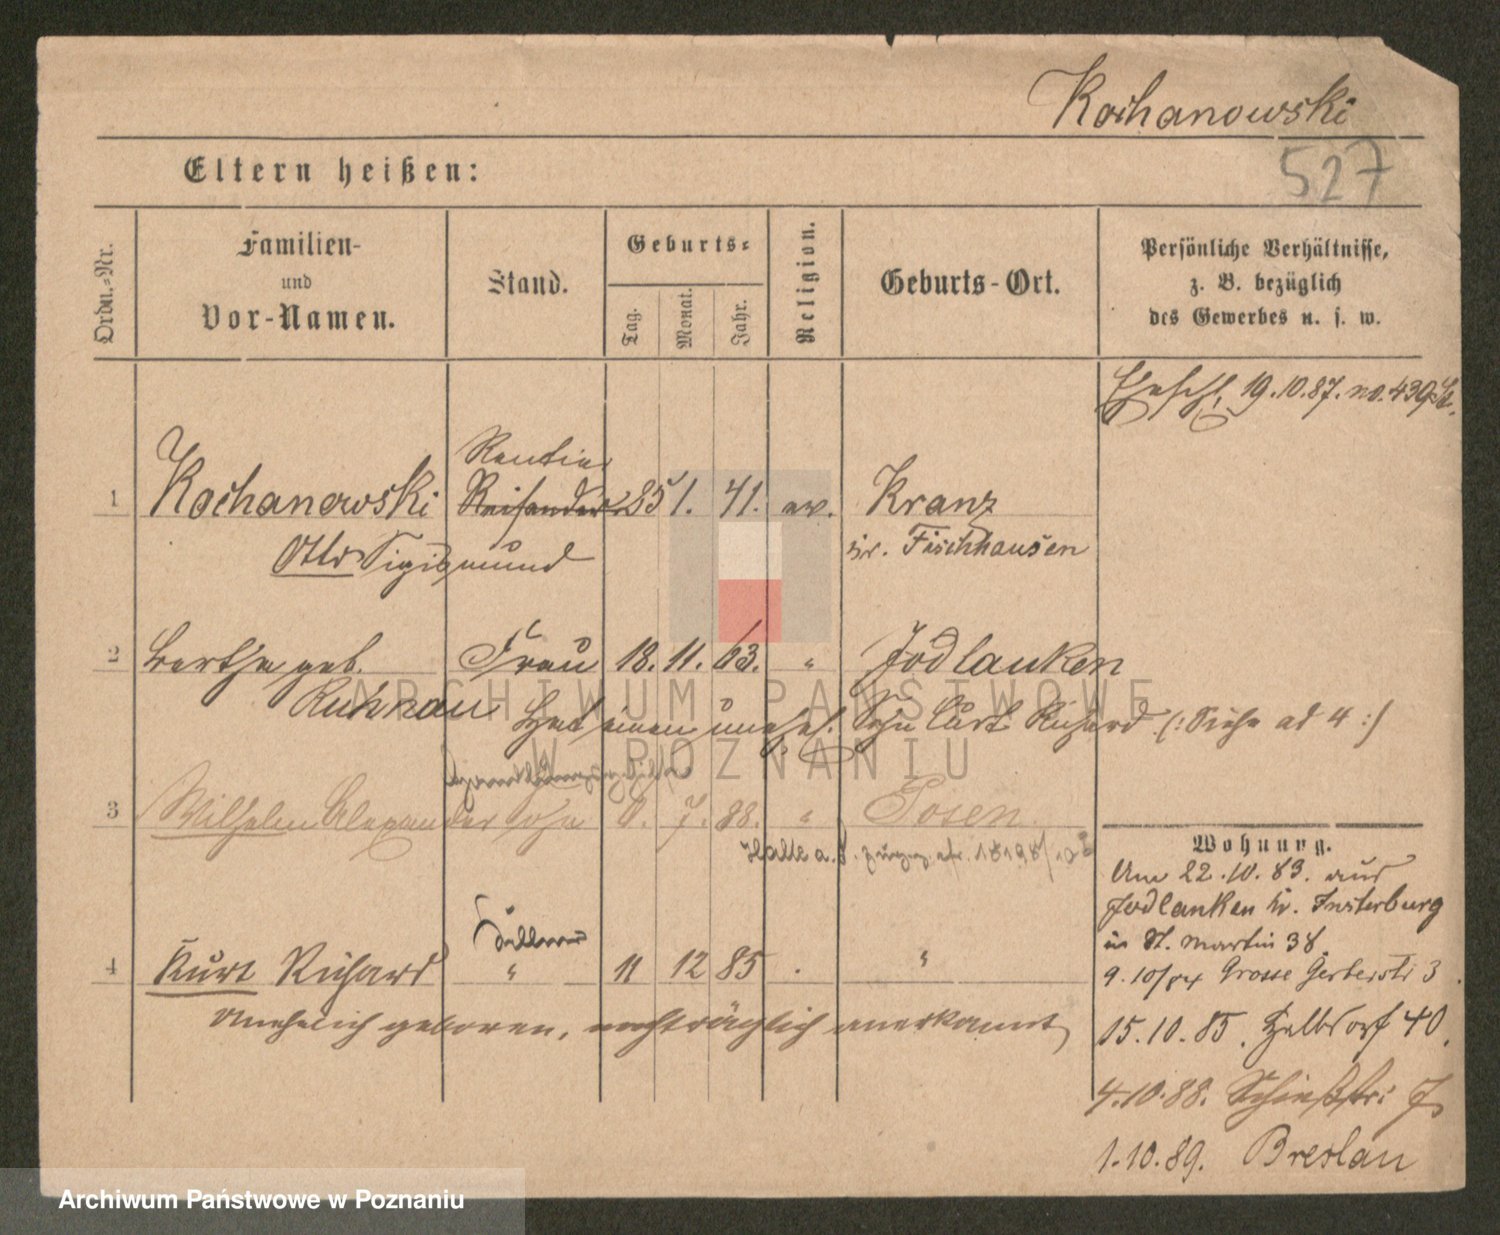 Kochanowski
527
Eltern heißen:
Ordn.-Nr.
Familien-
und
Vor-Namen.
Stand.
Geburts-
Tag.
Monat.
Jahr.
Religion.
Geburts-Ort.
Persönliche Verhältnisse,
z. B. bezüglich
des Gewerbes u. s. w.
19.10.87. no. 439
Rentier
1 Kochanowski Reisender 25 1. 41. ev. Kranz
Otto Sigismund Kr. Fischhausen
2 Bertha geb. Frau 18. 11. 63. " Jodlauken
Kuhnau Hat einen unehel. Sohn Curt Richard (: Siehe ad 4 :)
3 Wilhelm Alexander Sohn 7. 88. " Posen
Halle a. S.
4 Kurt Richard " 11 12 85 . "
Unehelich geboren, nachträglich anerkannt
Wohnung.
Am 22.10.83. aus
Jodlauken Kr. Insterburg
in St. Martin 38
9.10/84 Grosse Gerberstr 3
15.10.85. Halbdorf 40.
4.10.88. Schießstr: 7
1.10.89. Breslau
ARCHIWUM PAŃSTWOWE
W POZNANIU
Archiwum Państwowe w Poznaniu